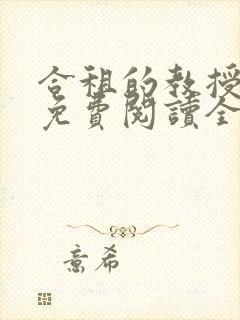 合租的教授
免費閱讀全
意希